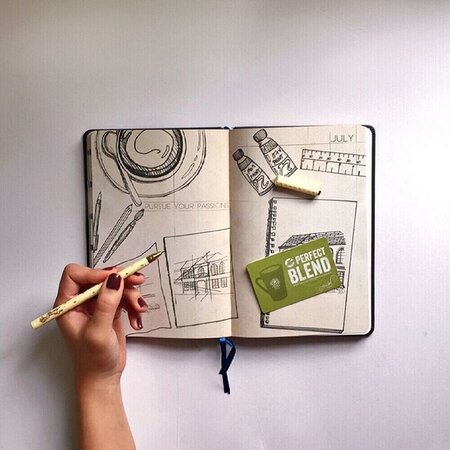 PURSUE YOUR PASSIONS
JULY
PERFECT
BLEND